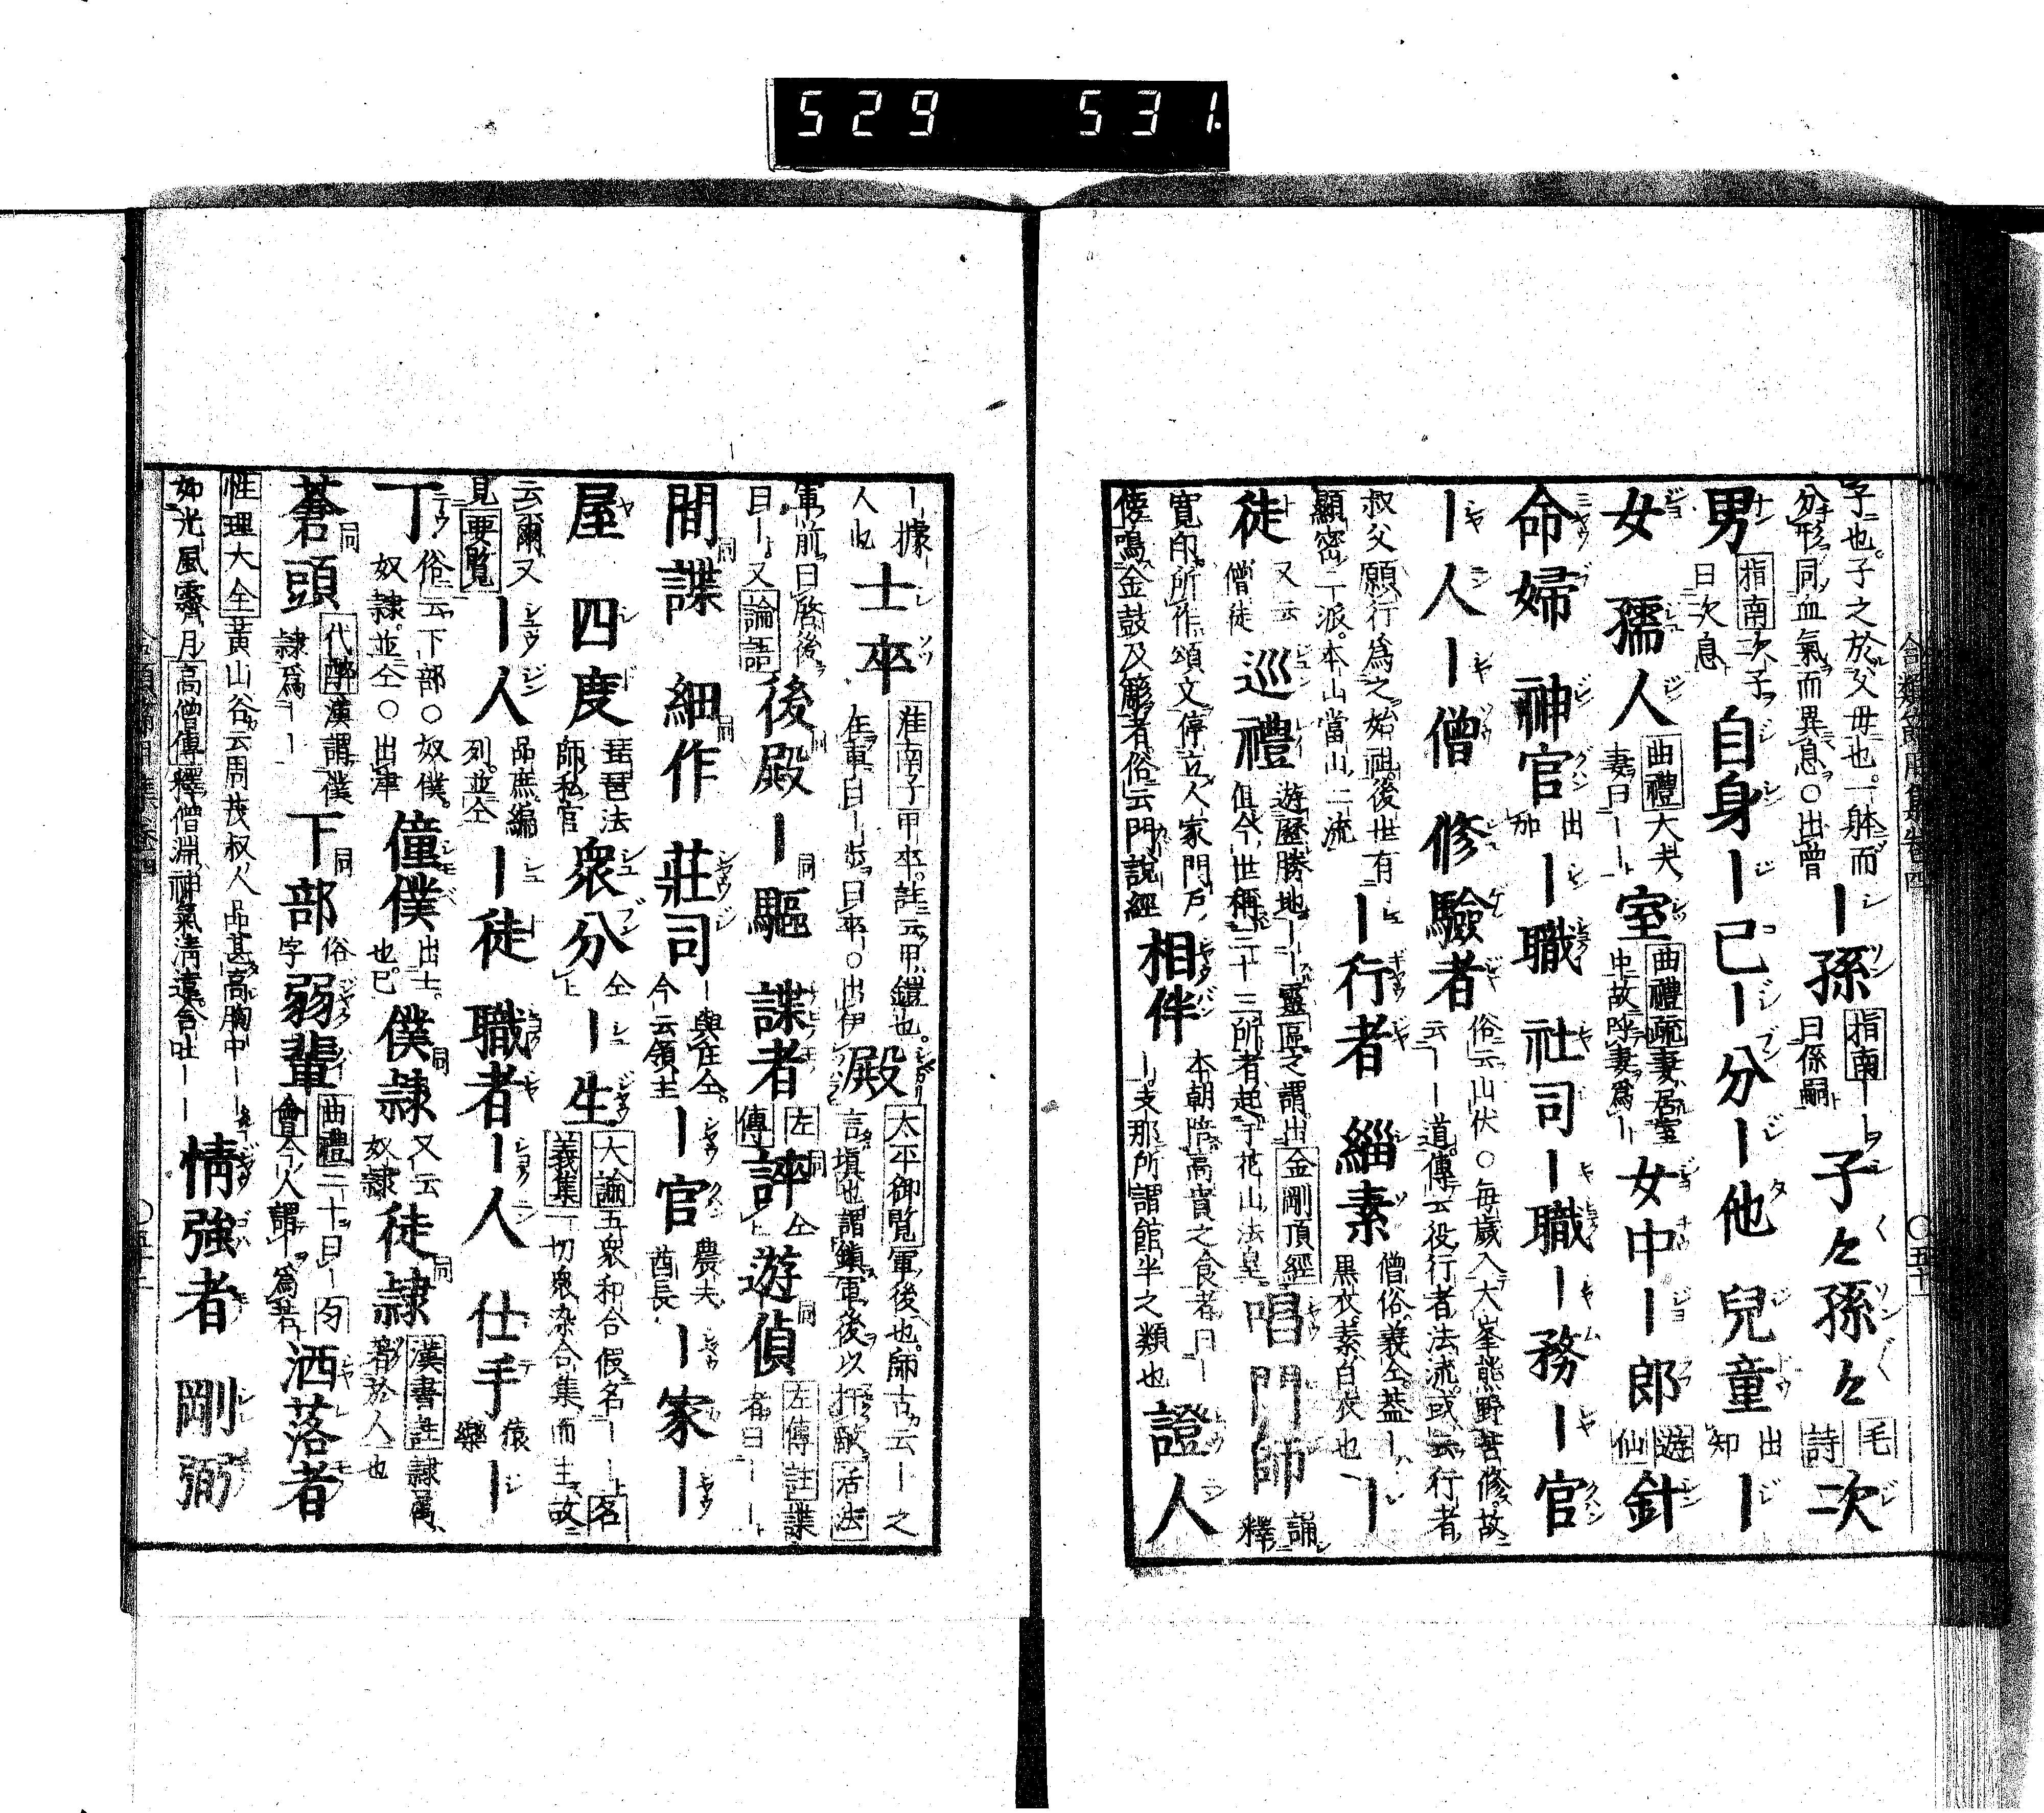 529 531.
合類節用集卷四 〇五十一
子也。子之於父母也。一躰而
分形同血氣而異息〇出曾
ー孫 指南ーー
曰係嗣
子々孫々 毛
詩
次
男 指南次子
曰次息
自身ー己ー分ー他 兒童 出
知
ー
女 孺人 曲禮大夫
妻曰ーー
室 曲禮疏妻居室
中故呼妻爲ー
女中ー郎 遊
仙
針
命婦 神官 出
加
ー職 社司ー職ー務ー官
ー人ー僧 修驗者 俗云山伏〇每歲入大峯熊野苦修故
云ーー道傳云役行者法流或云行者
叔父願行爲之始祖後世有
顯密二派。本山當山二流
ー行者 緇素 僧俗義仝蓋ー
黒衣素白衣也
ー
徒 又云
僧徒
巡禮 遊歷勝地ーー靈區之謂出金剛頂經
俱今世稱三十三所者起于花山法皇
唱門師 誦
釋
寬印所作頌文停立人家門戶
傍鳴金鼓及簓者俗云門說經
相伴 本朝陪高賓之食者曰ー
ー支那所謂館半之類也
證人
ー據ー
人也
士卒 淮南子甲卒註云甲鎧也。
在車曰ー步曰卒〇出伊
殿 太平御覧軍後也師古云ー之
言塡也謂鎭軍後以扞敵活法
軍前曰啓後
曰ー又論語
後殿ー驅 諜者 左
傳
評 仝
上
遊偵 左傳註諜
者曰ーー
間諜 細作 莊司 ー與庄仝
今云領主
ー官 農夫
酋長
ー家ー
屋 四度 琵琶法
師私官
衆分 仝
上
ー生 大論五衆和合假名ーー名
義集一切衆染合集而主故
云爾又
見要覧
ー人 品庶編
列並仝
ー徒 職者ー人 仕手 猿
樂
ー
丁 俗云下部〇奴僕
奴隷並仝〇出津
僮僕 出士
也已
僕隷 又云
奴隷
徒隷 漢書註隷属
著於人也
蒼頭 代醉漢謂僕
隷爲ーー
下部 俗
字
弱輩 曲禮二十曰ー匀
會今人謂爲
洒落者
性理大全黃山谷云周茂叔人品甚高胸中ーー
如光風霽月高僧傳釋僧淵神氣清遠含吐ーー
情強者 剛𢐀